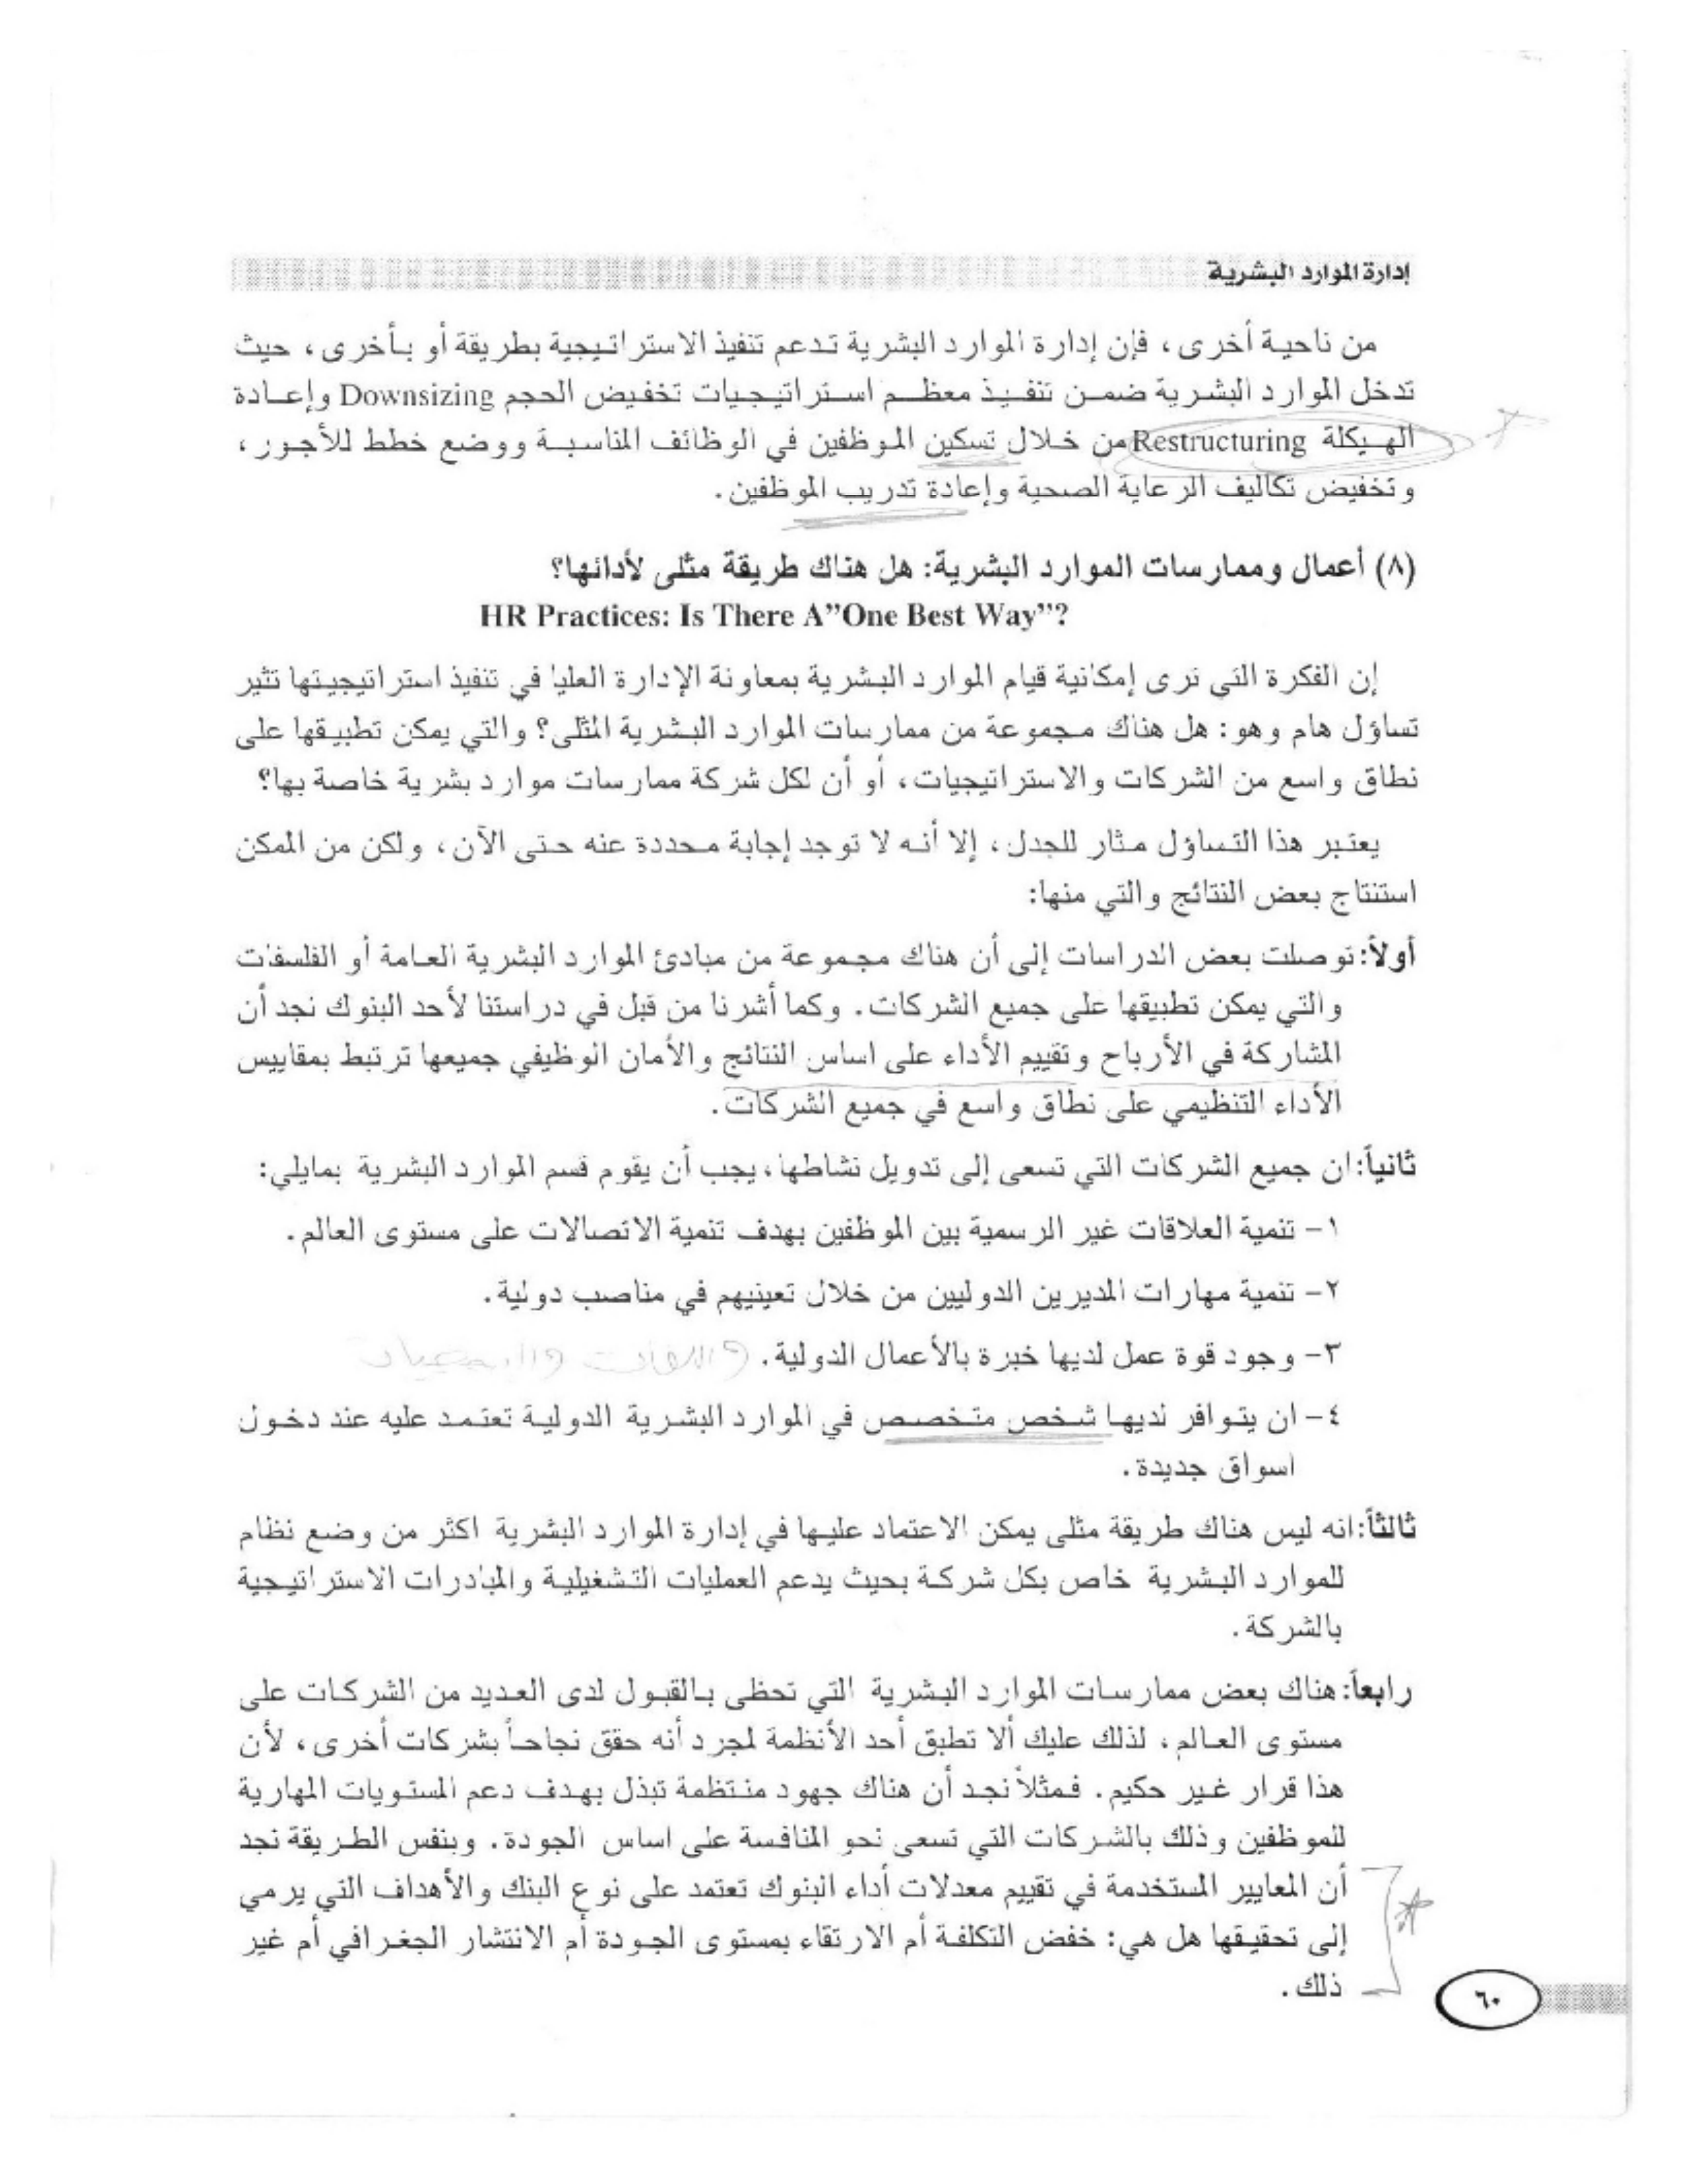 إدارة الموارد البشرية
من ناحية أخرى، فإن إدارة الموارد البشرية تدعم تنفيذ الاستراتيجية بطريقة أو بأخرى، حيث
تدخل الموارد البشرية ضمن تنفيذ معظم استراتيجيات تخفيض الحجم Downsizing وإعادة
الهيكلة Restructuring من خلال تسكين الموظفين في الوظائف المناسبة ووضع خطط للأجور،
وتخفيض تكاليف الرعاية الصحية وإعادة تدريب الموظفين.
(٨) أعمال وممارسات الموارد البشرية: هل هناك طريقة مثلى لأدائها؟
HR Practices: Is There A”One Best Way”?
إن الفكرة التي ترى إمكانية قيام الموارد البشرية بمعاونة الإدارة العليا في تنفيذ استراتيجيتها تثير
تساؤل هام وهو: هل هناك مجموعة من ممارسات الموارد البشرية المثلى؟ والتي يمكن تطبيقها على
نطاق واسع من الشركات والاستراتيجيات، أو أن لكل شركة ممارسات موارد بشرية خاصة بها؟
يعتبر هذا التساؤل مثار للجدل، إلا أنه لا توجد إجابة محددة عنه حتى الآن، ولكن من الممكن
استنتاج بعض النتائج والتي منها:
أولاً: توصلت بعض الدراسات إلى أن هناك مجموعة من مبادئ الموارد البشرية العامة أو الفلسفات
والتي يمكن تطبيقها على جميع الشركات. وكما أشرنا من قبل في دراستنا لأحد البنوك نجد أن
المشاركة في الأرباح وتقييم الأداء على اساس النتائج والأمان الوظيفي جميعها ترتبط بمقاييس
الأداء التنظيمي على نطاق واسع في جميع الشركات.
ثانياً: ان جميع الشركات التي تسعى إلى تدويل نشاطها، يجب أن يقوم قسم الموارد البشرية بمايلي:
١- تنمية العلاقات غير الرسمية بين الموظفين بهدف تنمية الاتصالات على مستوى العالم.
٢- تنمية مهارات المديرين الدوليين من خلال تعينيهم في مناصب دولية.
٣- وجود قوة عمل لديها خبرة بالأعمال الدولية.
٤- ان يتوافر لديها شخص متخصص في الموارد البشرية الدولية تعتمد عليه عند دخول
اسواق جديدة.
ثالثاً: انه ليس هناك طريقة مثلى يمكن الاعتماد عليها في إدارة الموارد البشرية اكثر من وضع نظام
للموارد البشرية خاص بكل شركة بحيث يدعم العمليات التشغيلية والمبادرات الاستراتيجية
بالشركة.
رابعاً: هناك بعض ممارسات الموارد البشرية التي تحظى بالقبول لدى العديد من الشركات على
مستوى العالم، لذلك عليك ألا تطبق أحد الأنظمة لمجرد أنه حقق نجاحاً بشركات أخرى، لأن
هذا قرار غير حكيم. فمثلاً نجد أن هناك جهود منتظمة تبذل بهدف دعم المستويات المهارية
للموظفين وذلك بالشركات التي تسعى نحو المنافسة على اساس الجودة. وبنفس الطريقة نجد
أن المعايير المستخدمة في تقييم معدلات أداء البنوك تعتمد على نوع البنك والأهداف التي يرمي
إلى تحقيقها هل هي: خفض التكلفة أم الارتقاء بمستوى الجودة أم الانتشار الجغرافي أم غير
ذلك.
٦٠